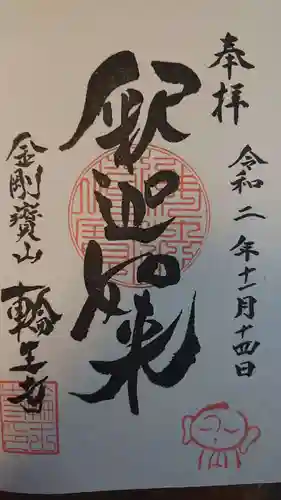 奉拝
令和二年十一月十四日
釈迦如来
金剛寳山
輪王寺